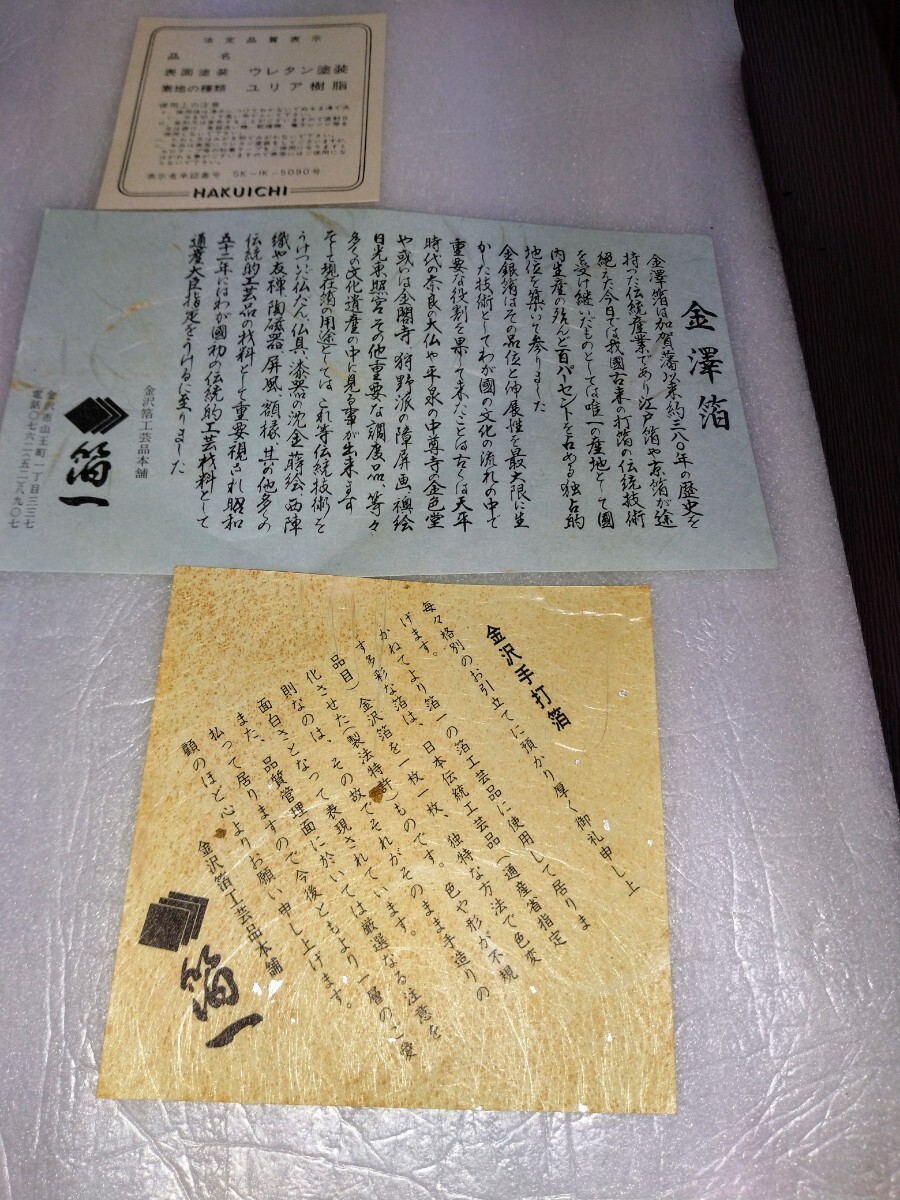 法定品質表示
品名
表面塗装 ウレタン塗装
素地の種類 ユリア樹脂
使用上の注意
表示者承認番号 SK-IK-5090号
HAKUICHI
金澤箔
金澤箔は加賀藩以来約三八〇年の歴史を
持った伝統産業であり江戸箔や京箔が途
絶えた今日では我國古来の打箔の伝統技術
を受け継いだものとしては唯一の産地として國
内生産の殆んど百パーセントを占める独占的
地位を築いて参りました
金銀箔はその品位と伸展性を最大限に生
かした技術としてわが國の文化の流れの中で
重要な役割を果して来たことは古くは天平
時代の奈良の大仏や平泉の中尊寺の金色堂
や或いは金閣寺、狩野派の障屏画、襖絵
日光東照宮その他重要な調度品、等々
多くの文化遺産の中に見る事が出来ます
そして現在箔の用途としてはこれ等伝統技術を
うけついだ仏だん、仏具、漆器の沈金、蒔絵、西陣
織や友禅、陶磁器、屏風、額様、其の他多くの
伝統的工芸品の材料として重要視され昭和
五十二年にはわが國初の伝統的工芸材料として
通産大臣指定をうけるに至りました
金沢箔工芸品本舗
箔一
金沢市山王町一丁目三三七
電話〇七六二(五二)八九〇七
金沢手打箔
毎々格別のお引立てに預かり厚く御礼申し上
げます。
かねてより箔一の箔工芸品に使用して居りま
す多彩な箔は、日本伝統工芸品(通産省指定
品目)金沢箔を一枚一枚、独特な方法で色変
化させた(製法特許)ものです。色や形が不規
則なのは、その故でそれがそのまま手造りの
面白さとなって表現されています。
また、品質管理面に於いては厳選なる注意を
払って居りますので今後ともより一層のご愛
顧のほど心よりお願い申し上げます。
金沢箔工芸品本舗
箔一